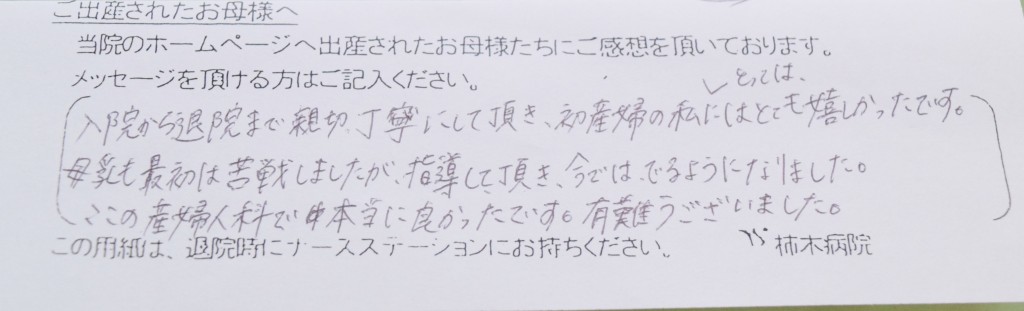 ご出産されたお母様へ
当院のホームページへ出産されたお母様たちにご感想を頂いております。
メッセージを頂ける方はご記入ください。
とっては、
入院から退院まで親切、丁寧にして頂き、初産婦の私にはとても嬉しかったです。
母乳も最初は苦戦しましたが、指導して頂き、今では、でるようになりました。
ここの産婦人科で本当に良かったです。有難うございました。
この用紙は、退院時にナースステーションにお持ちください。
柿木病院